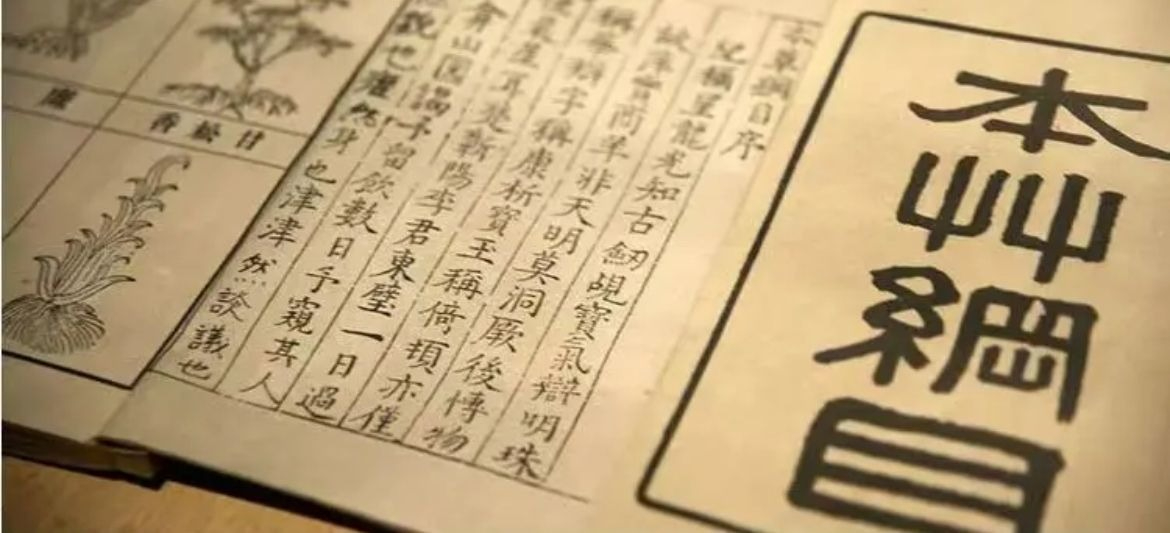 本艸綱目
本草綱目序
稱望龍光知古劒覘寶氣辯明珠
故萍實商羊非天明莫洞厥後博物
稱華辯字稱康析寶玉稱倚頓亦僅
晨星耳楚蘄陽李君東璧一日過
弇山園謁予留飲數日予窺其人
然貌也癯然身也津津然談議也
甘松香